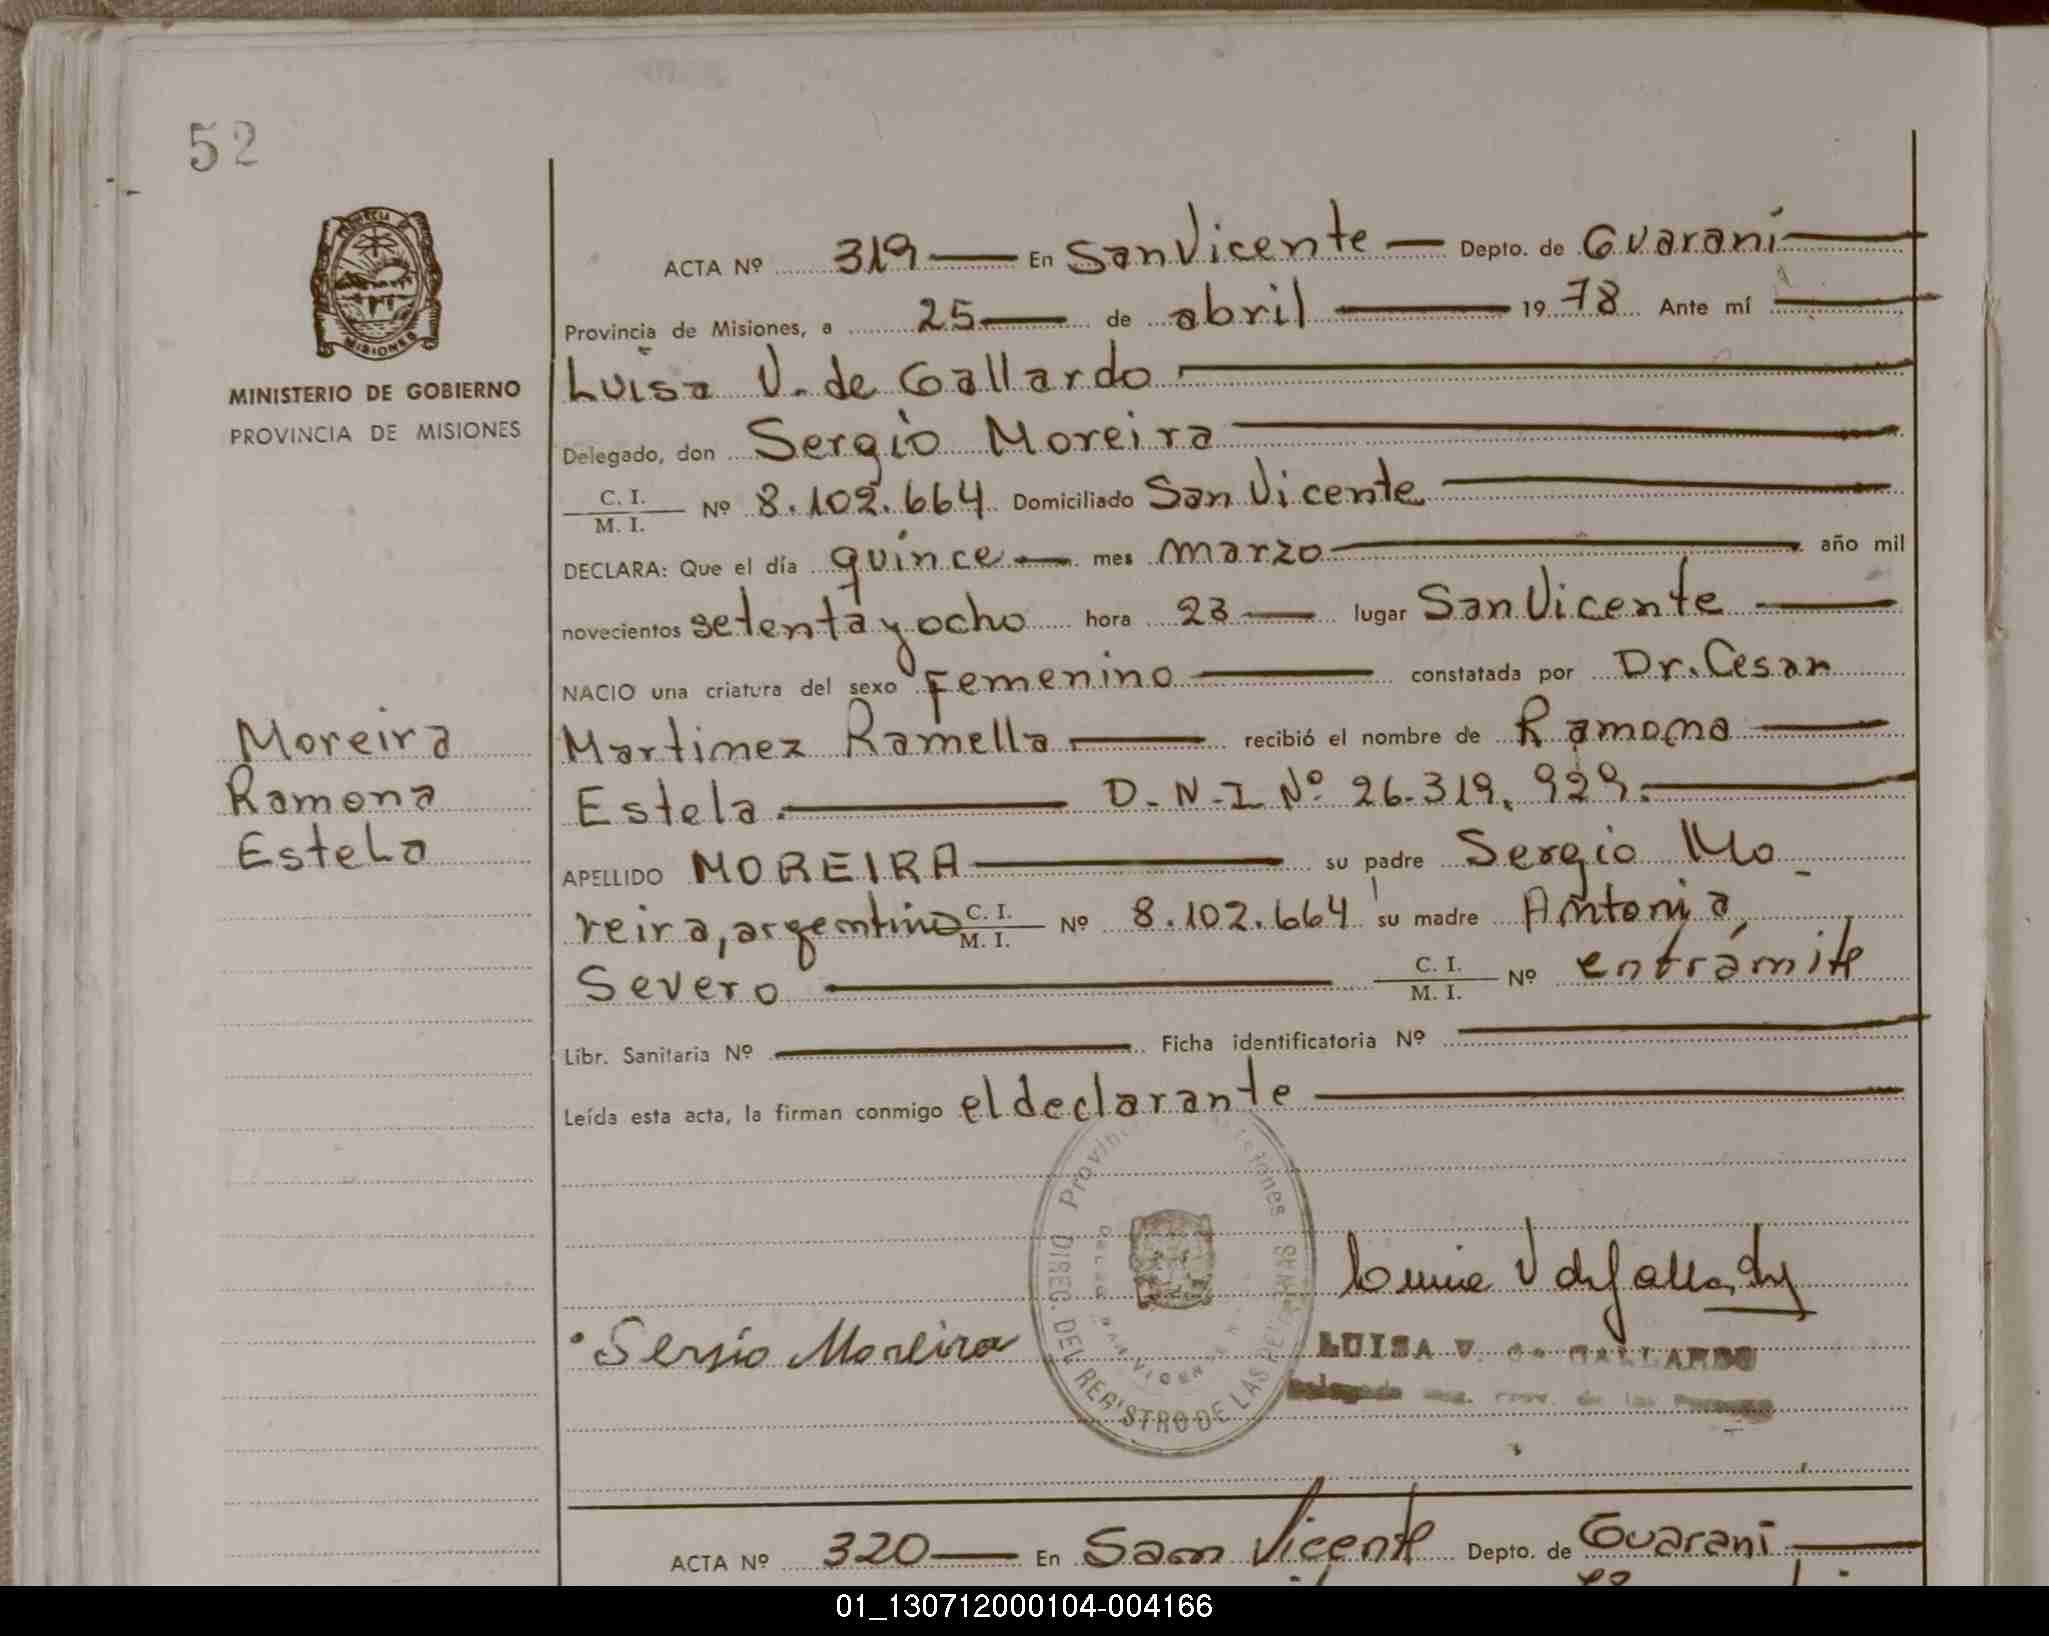 52
PROVINCIA DE
MISIONES
MINISTERIO DE GOBIERNO
PROVINCIA DE MISIONES
Moreira
Ramona
Estela
ACTA Nº 319 En San Vicente Depto. de Guaraní
Provincia de Misiones, a 25 de abril 1978 Ante mí
Luisa V. de Gallardo
Delegado, don Sergio Moreira
C. I.
M. I. Nº 8.102.664 Domiciliado San Vicente
DECLARA: Que el día quince mes marzo año mil
novecientos setenta y ocho hora 23 lugar San Vicente
NACIO una criatura del sexo Femenino constatada por Dr. Cesar
Martinez Ramella recibió el nombre de Ramona
Estela. D.N.I Nº 26.319.929.
APELLIDO MOREIRA su padre Sergio Mo
reira, argentino C. I.
M. I. Nº 8.102.664 su madre Antonia
Severo C. I.
M. I. Nº en trámite
Libr. Sanitaria Nº Ficha identificatoria Nº
Leída esta acta, la firman conmigo el declarante
Provincia Misiones
DIREC. DEL REGISTRO DE LAS PERSONAS
Sergio Moreira
Luisa V de Gallardo
LUISA V. de GALLARDO
Delegada Reg. Prov. de las Personas
ACTA Nº 320 En San Vicente Depto. de Guaraní
01_130712000104-004166